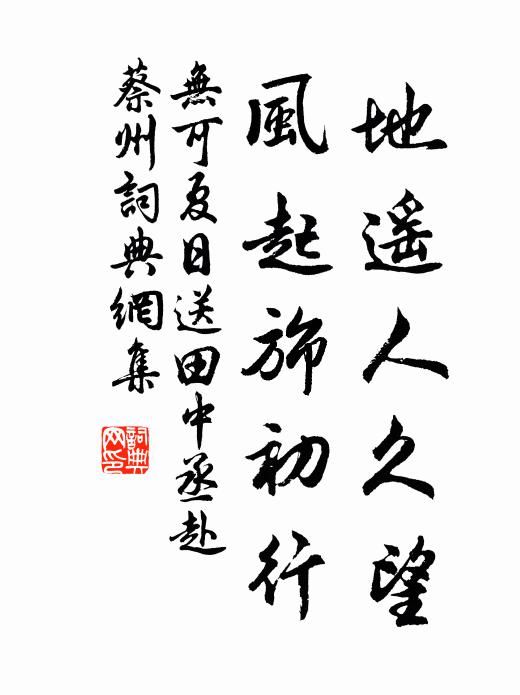 地遥人久望
風起旆初行
無可夏日送田中丞赴
蔡州詞典網集
詞典网印